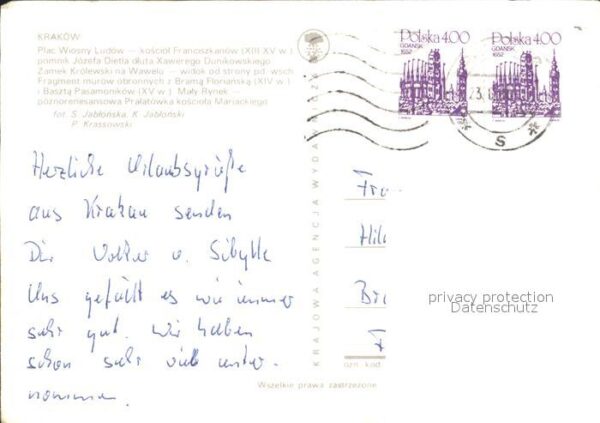 KRAKÓW
Plac Wiosny Ludów — kościół Franciszkanów (XIII XV w.)
pomnik Józefa Dietla dłuta Xawerego Dunikowskiego
Zamek Królewski na Wawelu — widok od strony pd. wsch
Fragment murów obronnych z Bramą Floriańską (XIV w.)
i Basztą Pasamoników (XV w.) Mały Rynek
późnorenesansowa Prałatówka kościoła Mariackiego
fot. S. Jabłońska, K. Jabłoński
P. Krassowski
Polska 4.00
GDAŃSK
1652
Polska 4.00
GDAŃSK
1652
S
Herzliche Urlaubsgrüße
aus Krakau senden
Dir Volker u. Sibylle
Uns gefällt es wie immer
sehr gut. Wir haben
schon sehr viel unter-
nommen.
KRAJOWA AGENCJA WYDAWNICZA
Fra
Hil
Br
privacy protection
Datenschutz
ozn. kod
Wszelkie prawa zastrzeżone